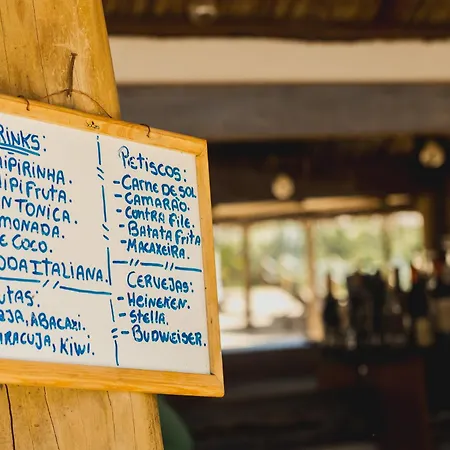 RINKS:
AIPIRINHA.
AIPIFRUTA.
IN TONICA.
MONADA.
DE COCO.
ODA ITALIANA.
UTAS:
AJA, ABACAXI.
ARACUJA, KIWI.
PETISCOS:
- CARNE DE SOL.
- CAMARÃO.
- CONTRA FILE.
- BATATA FRITA
- MACAXEIRA.
CERVEJAS:
- HEINEKEN.
- STELLA.
- BUDWEISER.